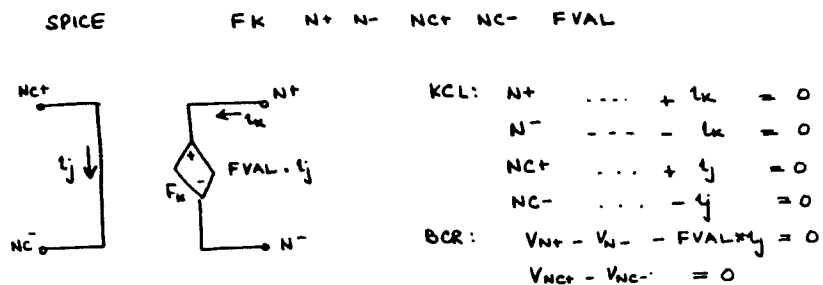 SPICE FK N+ N- NC+ NC- FVAL
NC+
ij
NC-
N+
← ik
+
-
FK
FVAL . ij
N-
KCL: N+ .... + ik = 0
N- --- - ik = 0
NC+ ... + ij = 0
NC- ... - ij = 0
BCR: VN+ - VN- - FVAL*ij = 0
VNC+ - VNC- = 0